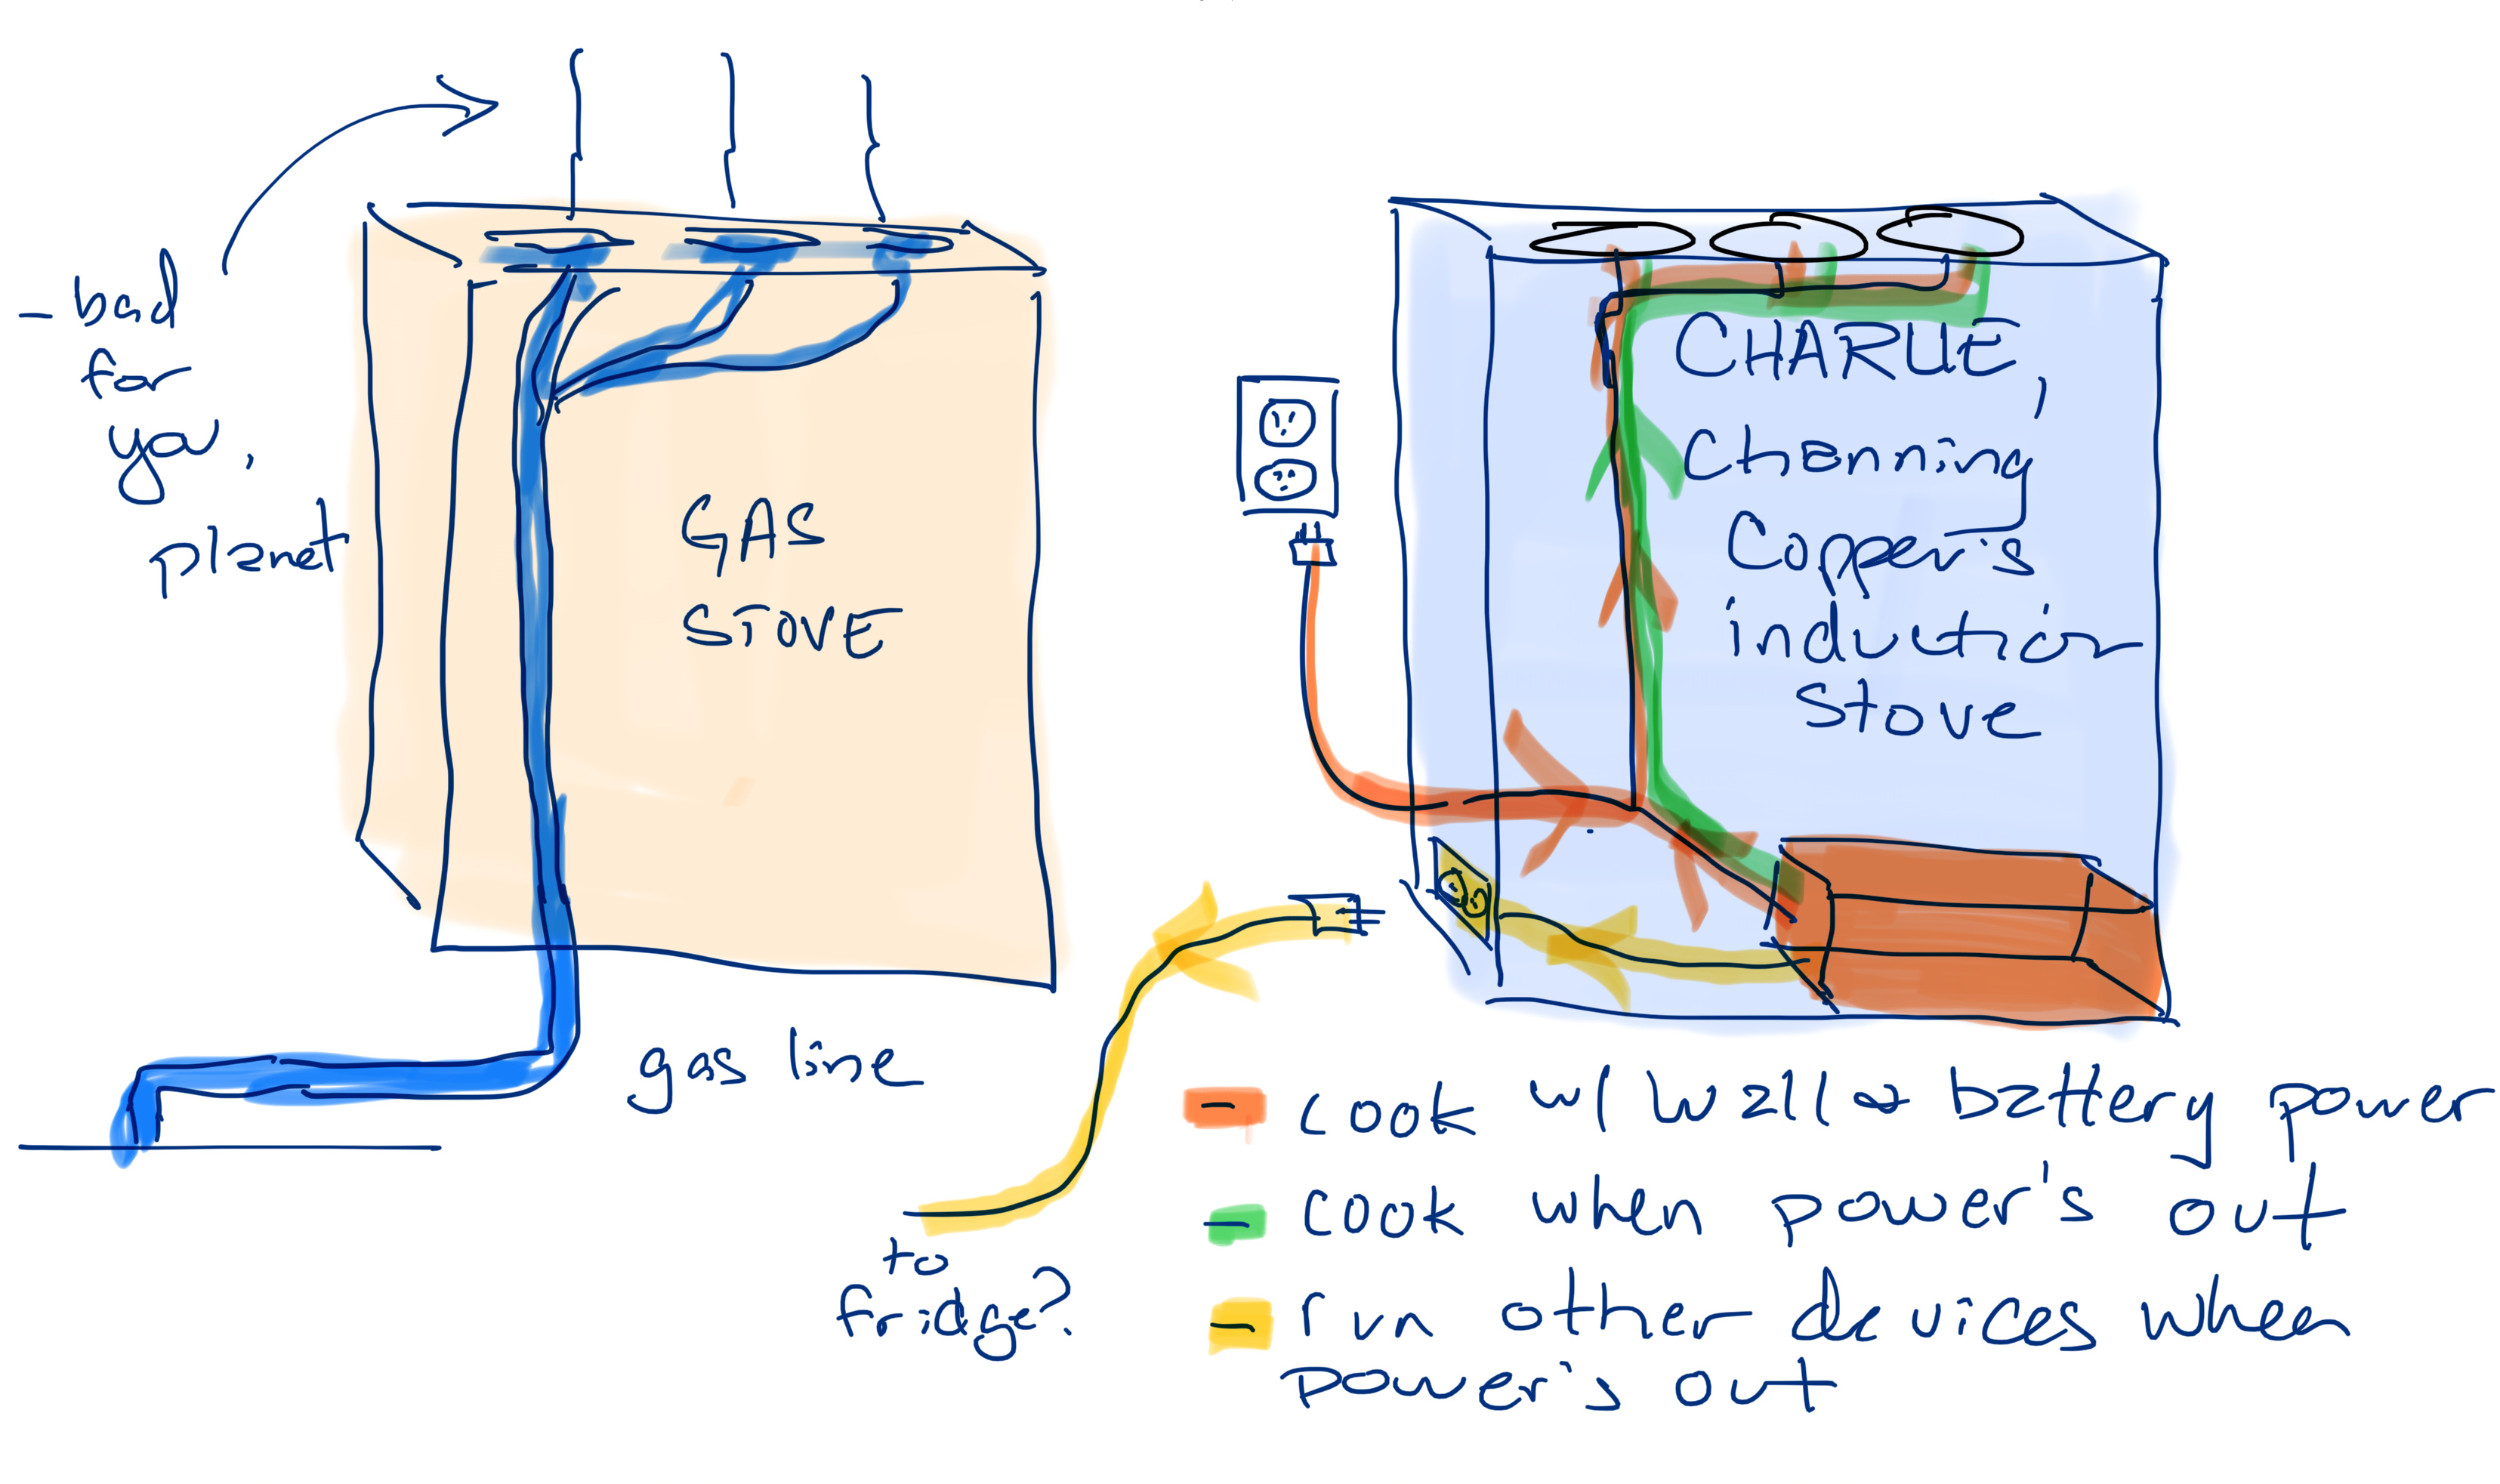 - bad
for
you,
planet
GAS
STOVE
gas line
to
fridge?
CHARLIE,
Channing
Copper's
induction
stove
cook w/ wall & battery power
cook when power's out
run other devices when
power's out